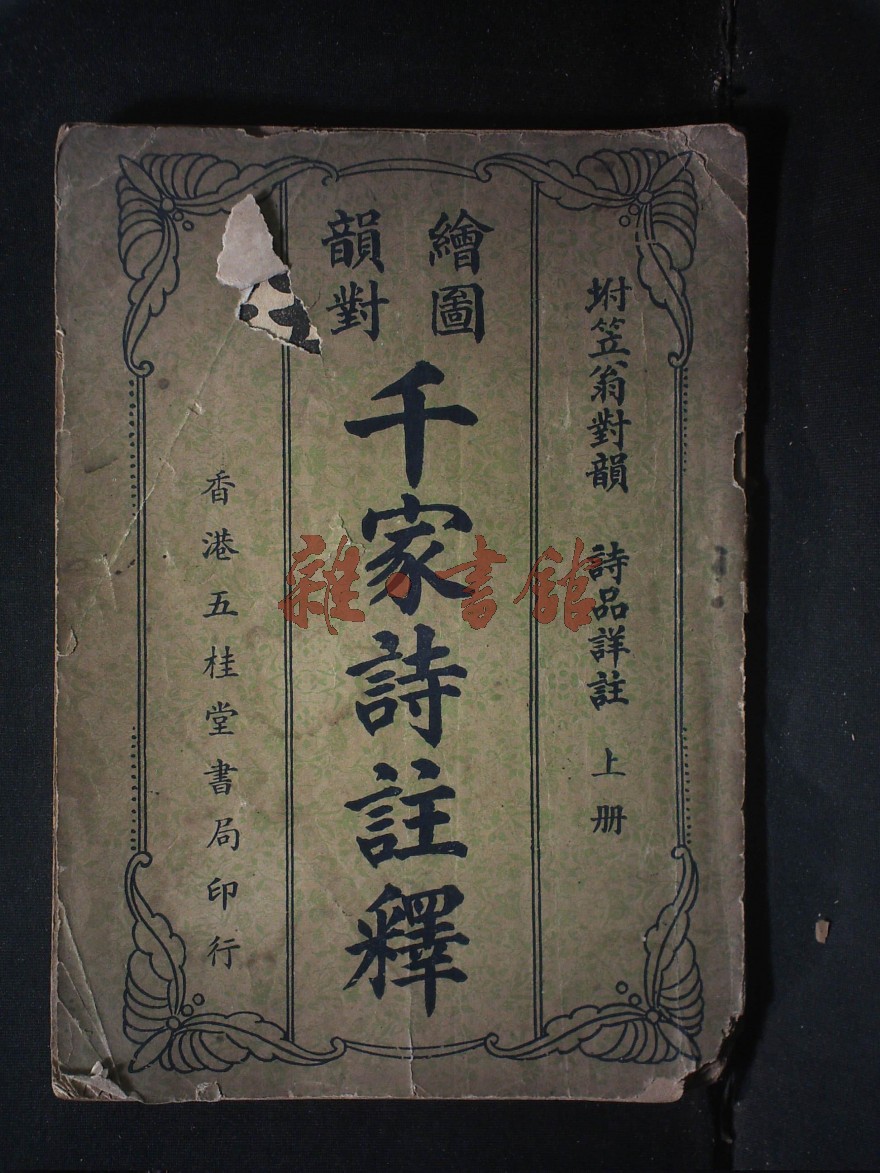 坿笠翁對韻　詩品詳註　上册
繪圖
韻對
千家詩註釋
香港五桂堂書局印行
雜·書館